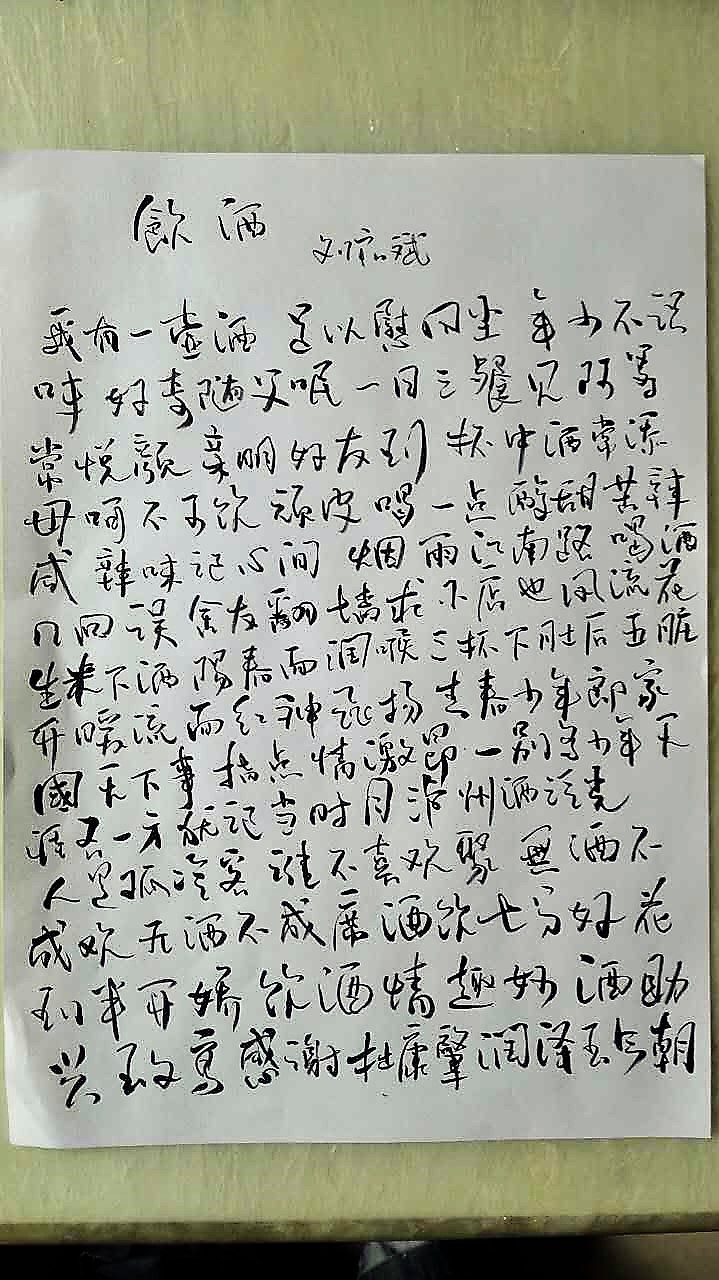 飲酒
我有一壶酒 足以慰风尘 年少不识
味 好奇随父呡 一日三餐见 阿爸
常悦颜 亲朋好友到 杯中酒常添
母嗔不可饮 顽皮喝一点 酸甜苦辣
咸 辣味记心间 烟雨江南路 喝酒
几回误 舍友翻墙求 小店也风流 花
生米下酒 阳春面润喉 三杯下肚后 五脏
开暖流 面红神飞扬 青春少年郎 家
國天下事 指点情激昂 一别当少年 天
涯各一方 犹记当时月 泸州酒
人是孤冷客 谁不喜欢聚 無酒不
成欢 无酒不成席 酒饮七分好 花
到半开娇 饮酒情趣妙 酒助
兴致高 感谢杜康肇 润泽至今朝